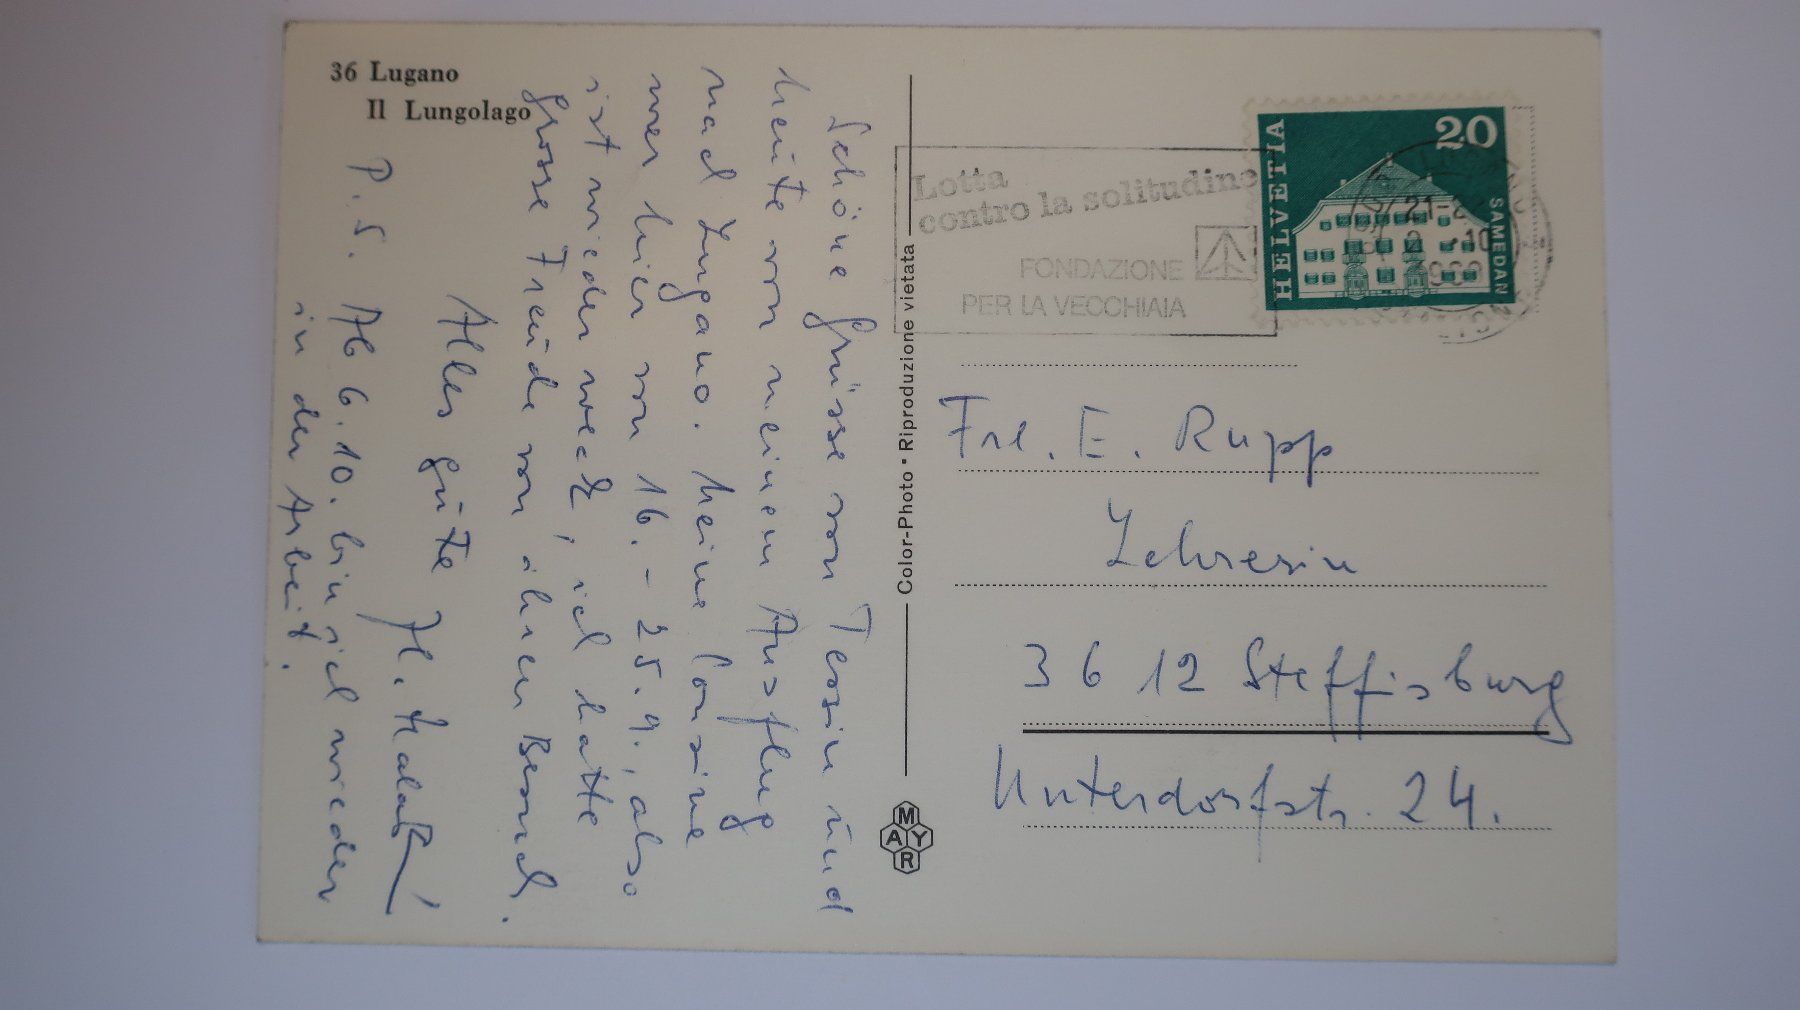 36 Lugano
Il Lungolago
Schöne Grüsse vom Tessin und
heute von meinem Ausflug
nach Lugano. Meine Cousine
war hier vom 16. - 25. 9., also
ist wieder weck, ich hatte
grosse Freude von ihrem Besuch.
Alles gute
P. S. Ab 6. 10. bin ich wieder
in der Arbeit.
Color-Photo • Riproduzione vietata
MAYR
Lotta
contro la solitudine
FONDAZIONE
PER LA VECCHIAIA
HELVETIA
20
SAMEDAN
Frl. E. Rupp
Lehrerin
3612 Steffisburg
Unterdorfstr. 24.